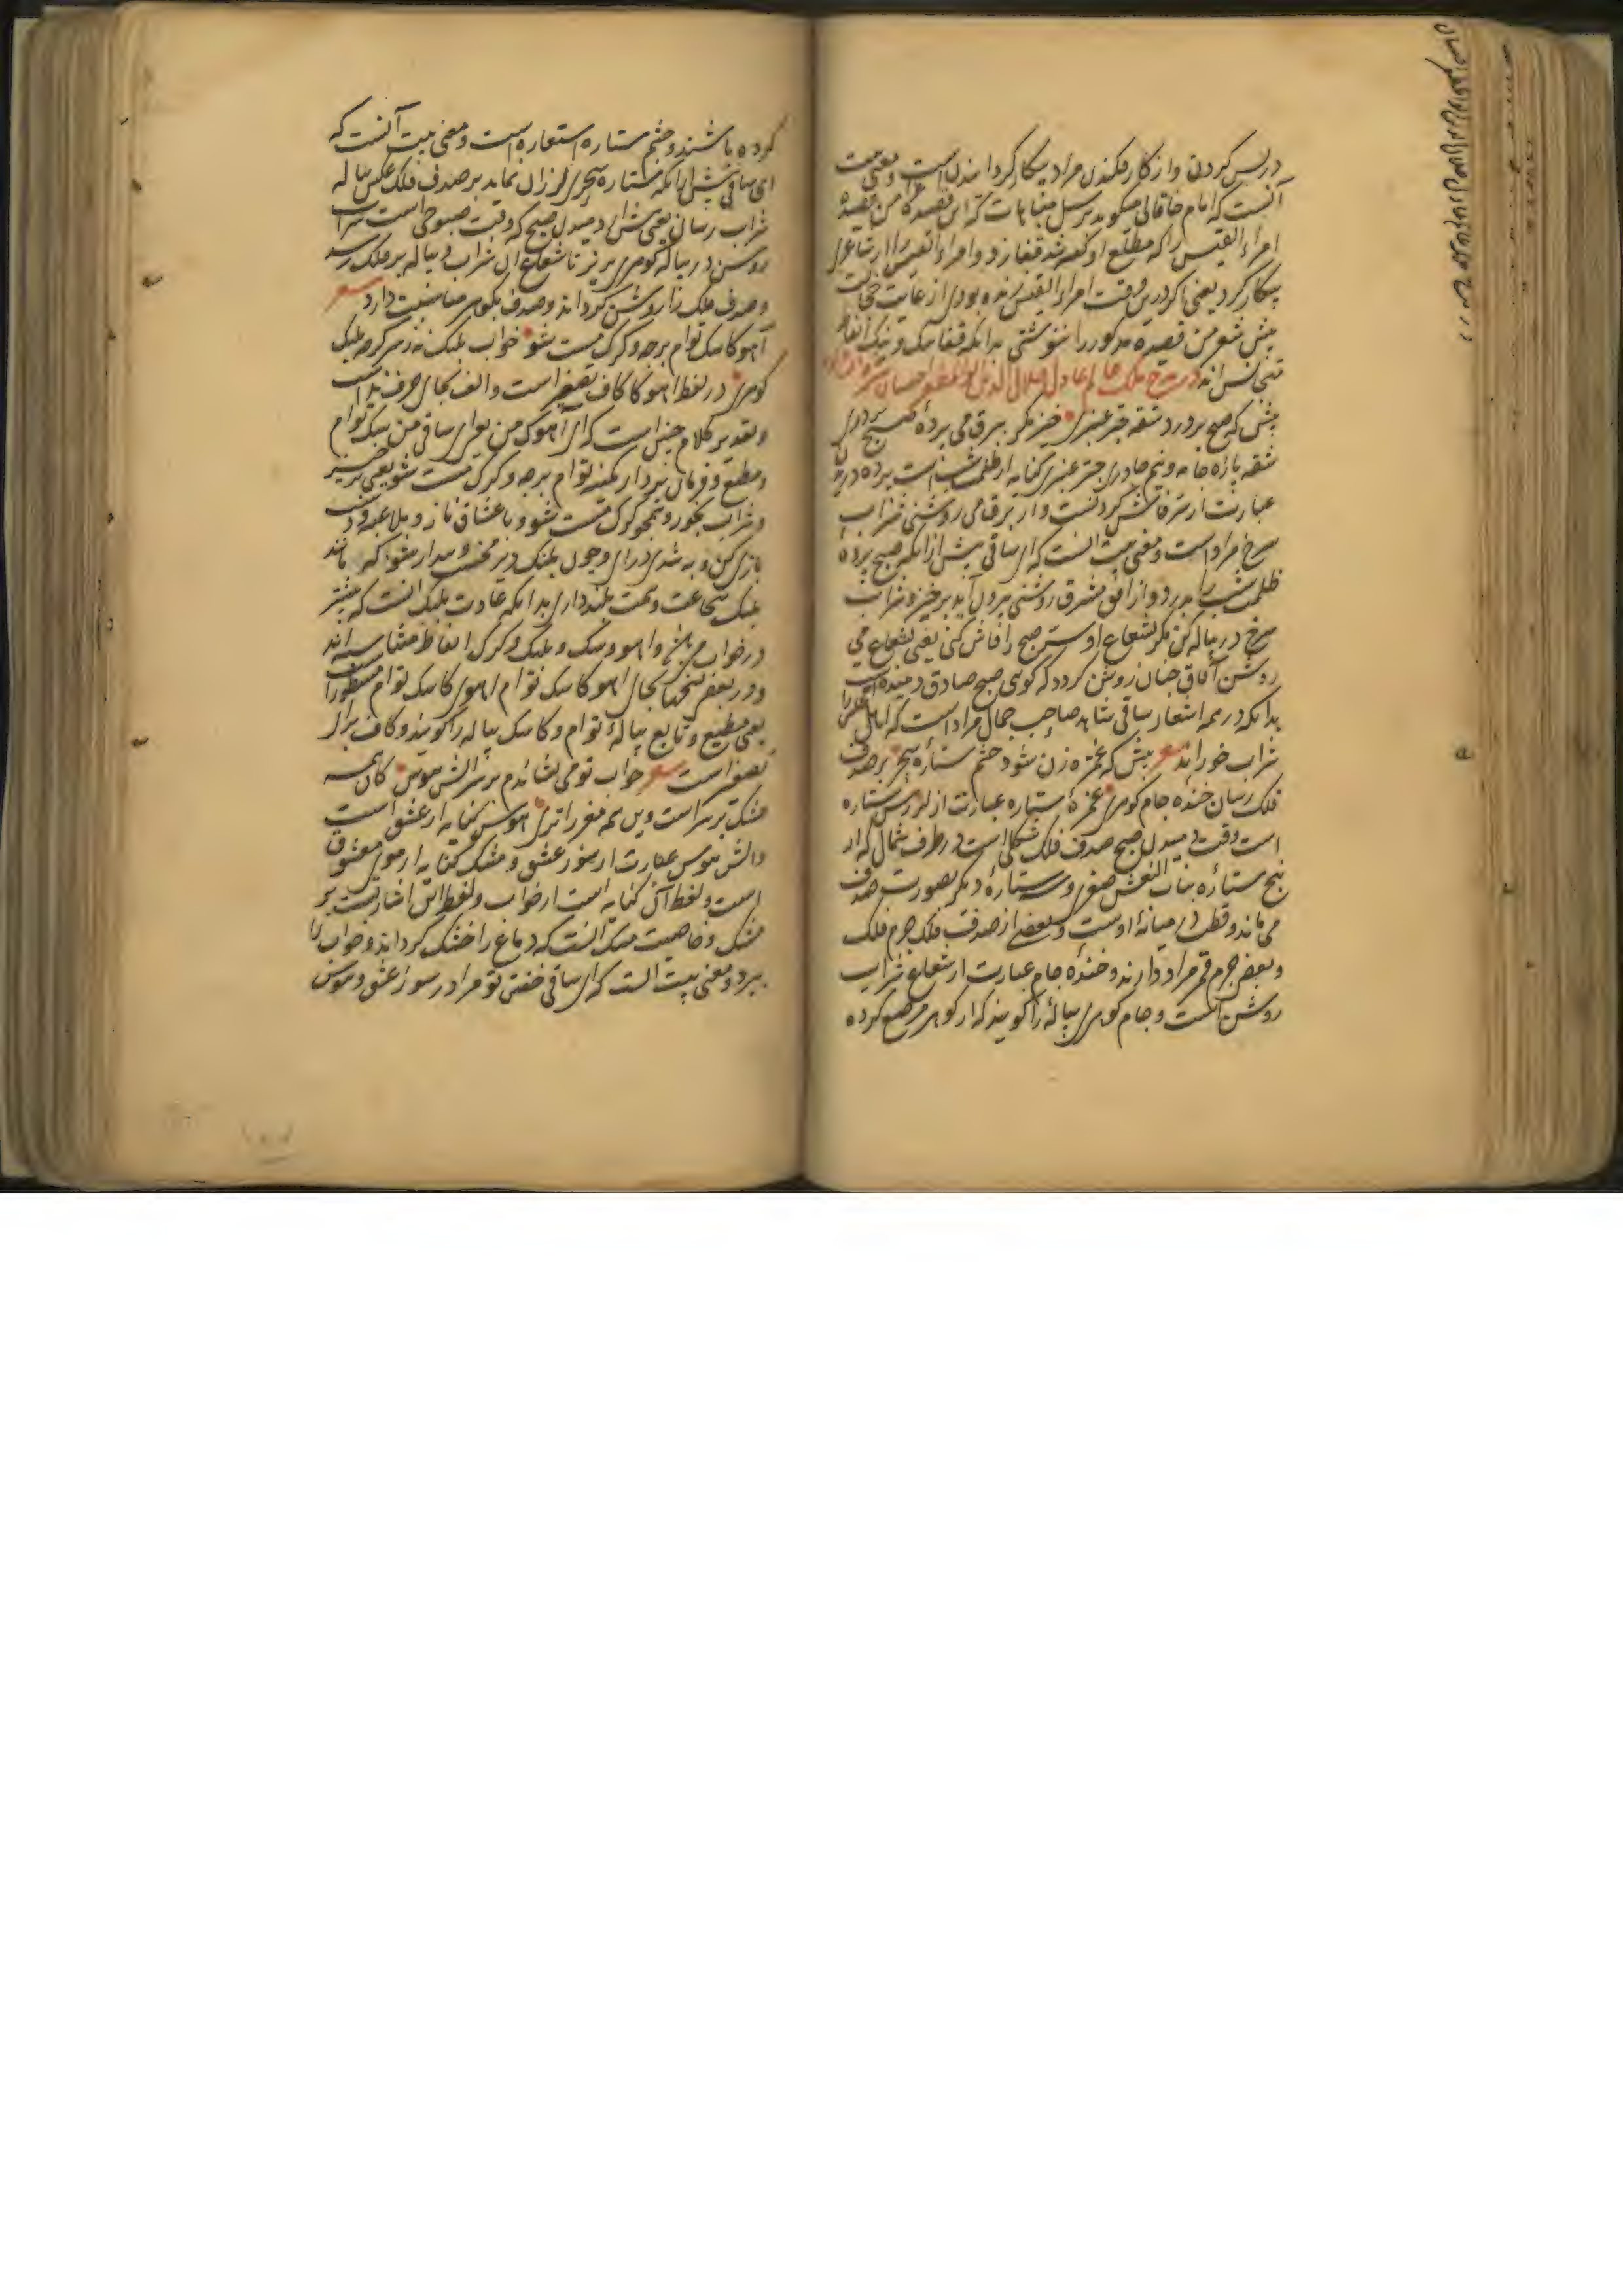 در پس کردن و از کار فکندن مراد بیکار کردانیدن است و معنی بیت
آنست که امام خاقانی میکوید بر سبیل مباهات که این قصیده من قصیده
امراء القیس را که مطلع او کفته شد قفا زد و امراء القیس را از شاعری
بیکار کرد یعنی اکر درین وقت امراء القیس زنده بودی از غایت خجالت
پیش شعر من قصیده مذکور را ننوشتی بدانکه قفا نبک و نبک الفاظ
متجانس اند در مدح ملک عالم عادل جلال الدین ابو المظفر اخستان
پیش که صبح بردرد شقه چتر عنبری خیز مکر ببرق می پرده صبح بردری
شقه پاره جامه و نیم چادر چتر عنبری کنایه از ظلمت شب است پرده دریدن
عبارت از سر فاش کردنست و از برق می روشنی شراب
سرخ مراد است و معنی بیت آنست که ای ساقی پیش از آنکه صبح پرده
ظلمت شب را بدرد و از افق مشرق روشنی بیرون آید برخیز و شراب
سرخ در پیاله کن مکر بشعاع او سر صبح را فاش کنی یعنی بشعاع می
روشن آفاق چنان روشن کردد که کوئی صبح صادق دمیده است
بدانکه در همه اشعار ساقی شاهد صاحب جمال مراد است که اهل مجلس را
شراب خوراند شعر پیش که غمزه زن شود چشم ستاره سحر بر صدف
فلک رسان خنده جام کوهری غمزه ستاره عبارت از لرزش ستاره
است وقت دمیدن صبح صدف فلک شکلی است در طرف شمال که از
پنج ستاره بنات النعش صغری و سه ستاره دیکر بصورت صدف
می ماند و قطب در میانه اوست و بعضی از صدف فلک جرم فلک
و بعضی جرم قمر مراد دارند و خنده جام عبارت از شعاع شراب
روشن است و جام کوهری پیاله را کویند که از کوهر مرصع کرده
کرده باشند و چشم ستاره استعاره است و معنی بیت آنست که
ای ساقی پیش از آنکه ستاره سحری لرزان نماید بر صدف فلک عکس پیاله
شراب رسان یعنی پیش از دمیدن صبح که وقت صبوحی است شراب
روشن در پیاله کوهری بریز تا شعاع آن شراب و پیاله بر فلک رسد
و صدف فلک را روشن کرداند و صدف بکوهر مناسبت دارد شعر
آهوکا سک توام برجه و کرک مست شو خواب پلنک نه ز سر کرچه پلنک
کوهری در لفظ آهوکا کاف تصغیر است و الف بجای حرف ندا است
و تقدیر کلام چنین است که ای آهوک من یعنی ای ساقی من سک توام
و مطیع و فرمان بردار کمینه توام برجه و کرک مست شو یعنی برخیز
و شراب بخور و همچو کرک مست شو و با عشاق ناز و ملاعبه و
بازی کن و به شدی درای و چون پلنک دیر مخسپ و بیدار شو اکرچه مانند
پلنک شجاعت و همت بلند داری بدانکه عادت پلنک آنست که بیشتر
در خواب می باشد و آهو و سک و پلنک و کرک الفاظ متناسبه اند
و در بعضی نسخها بجای آهوکا سک توام آهوی کاسک توام مسطور است
یعنی مطیع و تابع پیاله توام و کاسک پیاله را کویند و کاف برای
تصغیر است شعر خواب تو می نشاندم بر سر آتش هوس کان همه
مشک بر سر است وین همه مغز را تری هوس کنایه از عشق است
و آتش هوس عبارت از سوز عشق و مشک کنایه از موی معشوق
است و لفظ آن کنایه است از خواب و لفظ این اشارتست بر
مشک و خاصیت مشک آنست که دماغ را خشک کرداند و خواب را
ببرد و معنی بیت آنست که ای ساقی خفتن تو مرا در سوز عشق و هوس